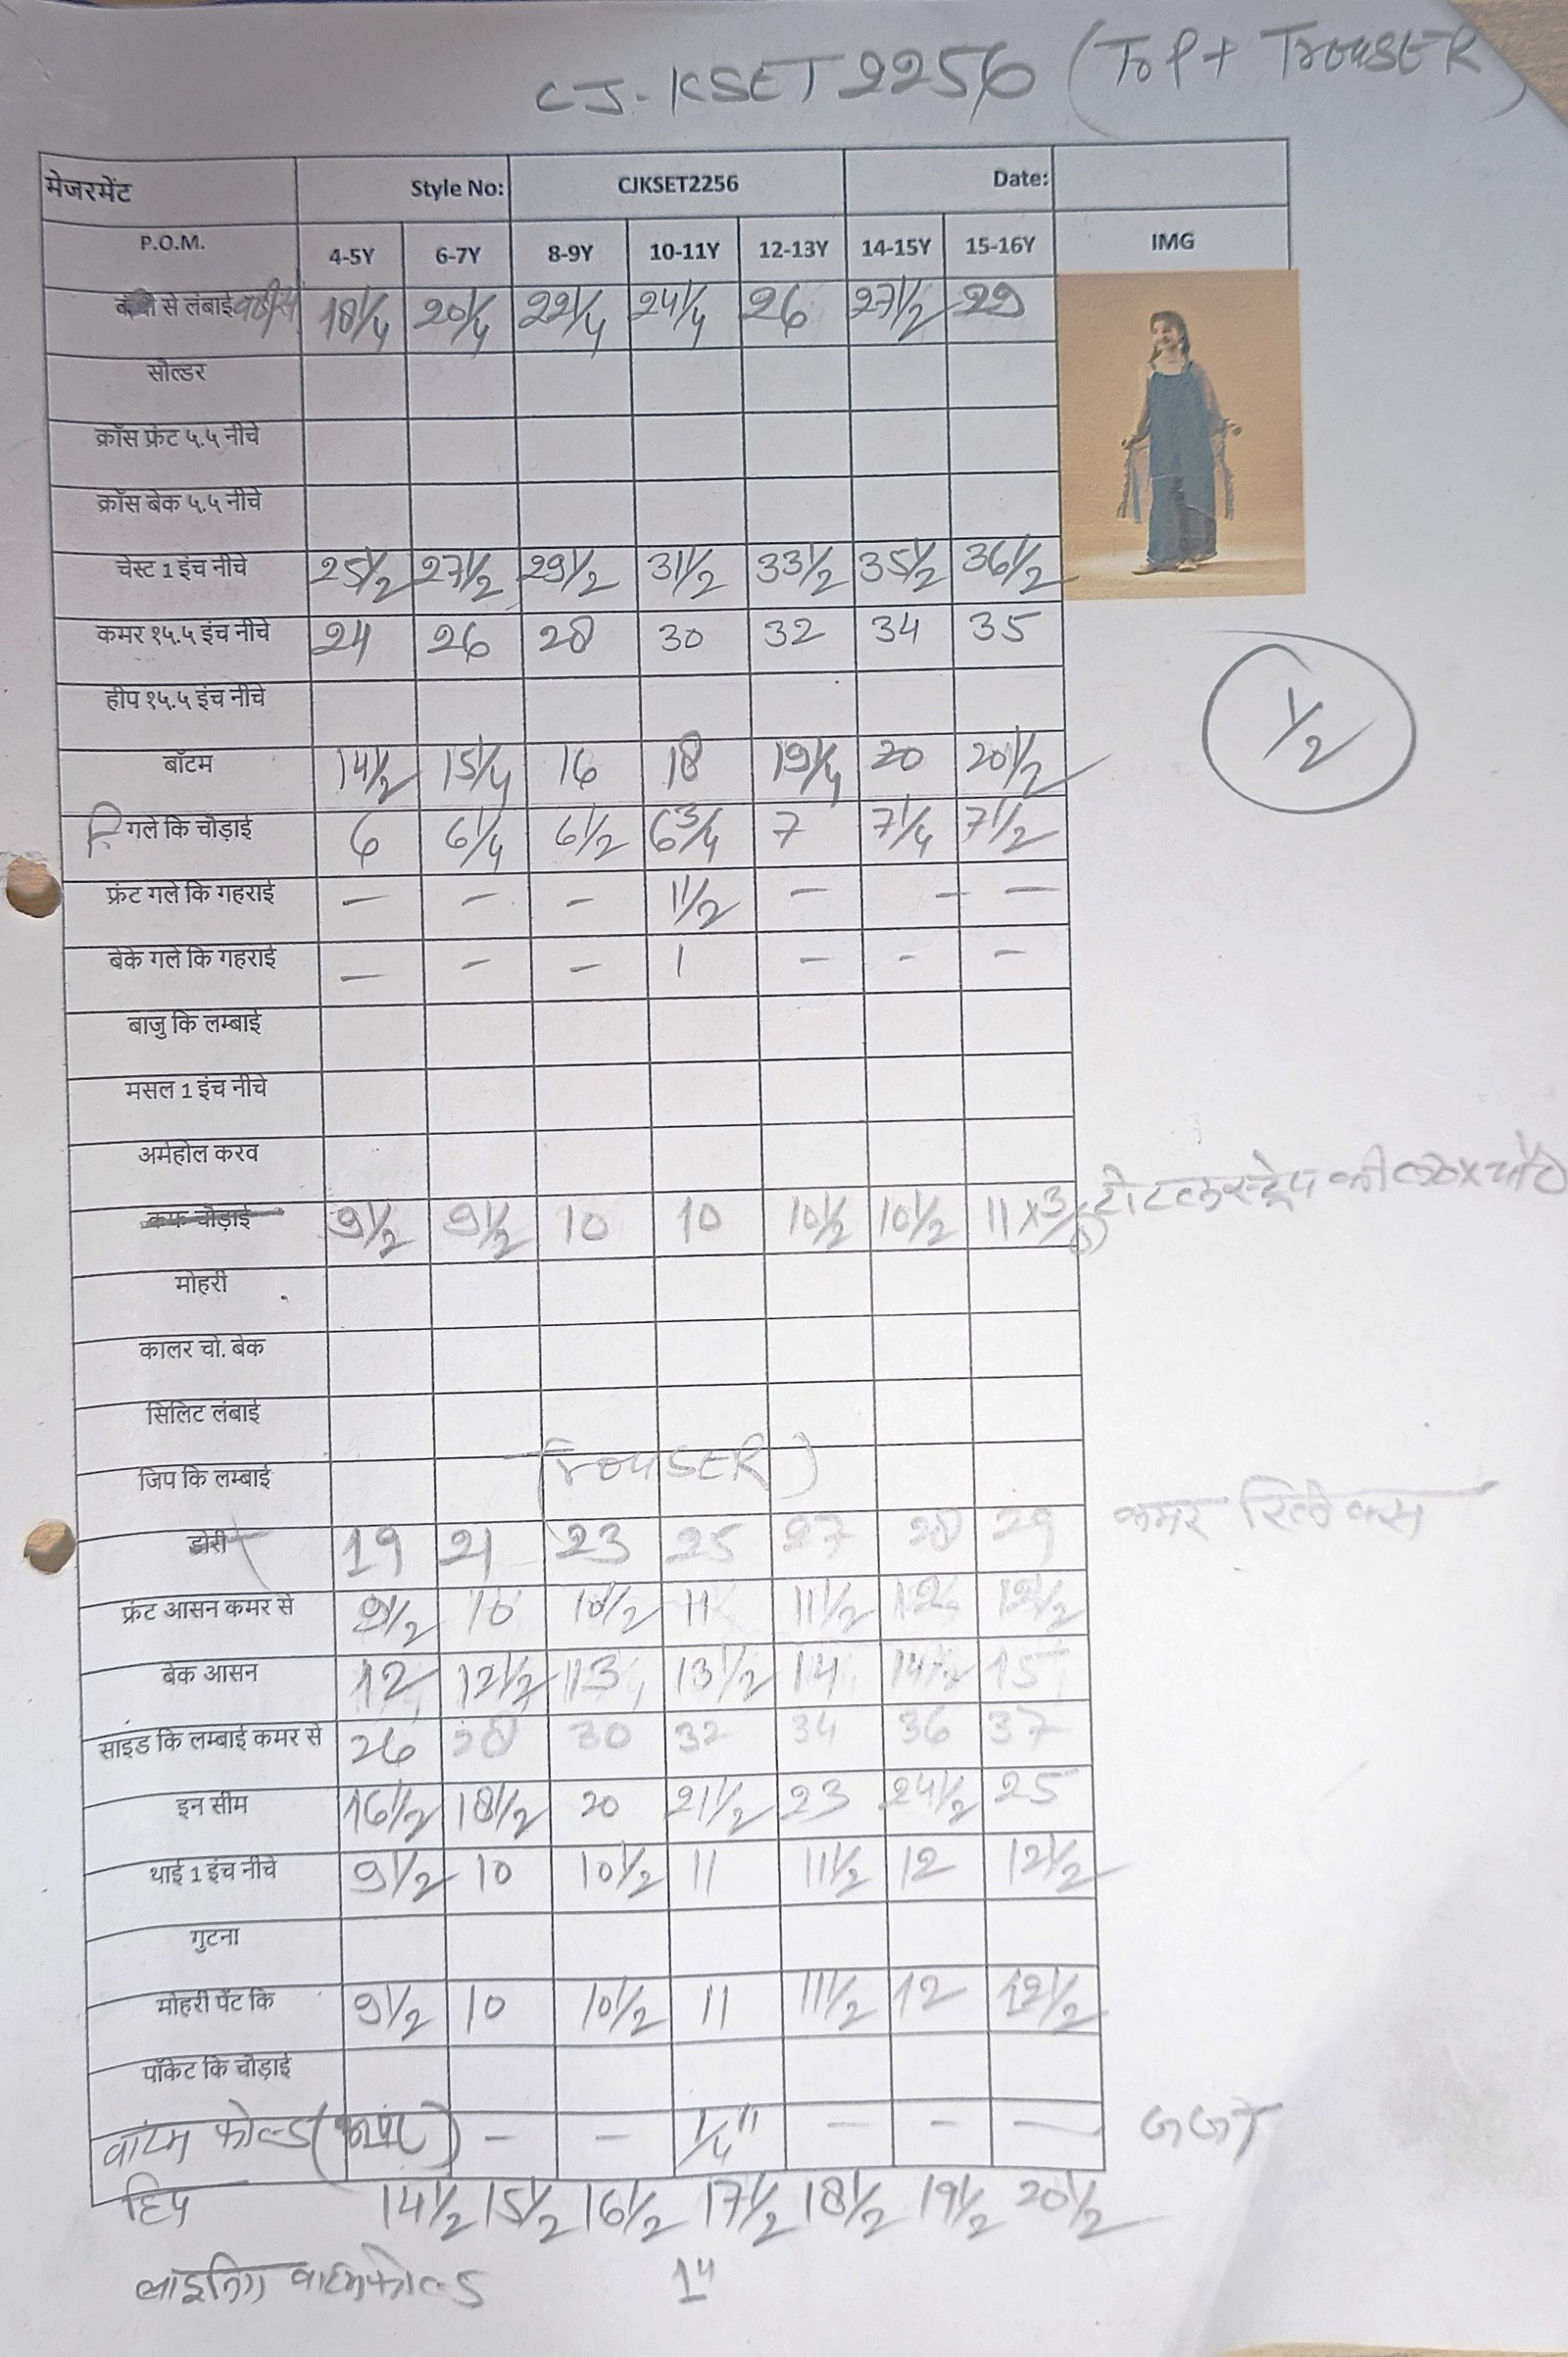 CJ-KSET2256 (Top + TrouSER)
मेजरमेंट Style No: CJKSET2256 Date:
P.O.M. 4-5Y 6-7Y 8-9Y 10-11Y 12-13Y 14-15Y 15-16Y IMG
से लंबाई 18 1/4 20 1/4 22 1/4 24 1/4 26 27 1/2 29
सोल्डर
क्रॉस फ्रंट ५.५ नीचे
क्रॉस बेक ५.५ नीचे
चेस्ट 1 इंच नीचे 25 1/2 27 1/2 29 1/2 31 1/2 33 1/2 35 1/2 36 1/2
कमर १५.५ इंच नीचे 24 26 28 30 32 34 35
हीप १५.५ इंच नीचे
1/2
बॉटम 14 1/2 15 1/4 16 18 19 1/4 20 20 1/2
गले कि चोड़ाई 6 6 1/4 6 1/2 6 3/4 7 7 1/4 7 1/2
फ्रंट गले कि गहराई — — — 1 1/2 — — —
बेके गले कि गहराई — — — 1 — — —
बाजु कि लम्बाई
मसल 1 इंच नीचे
अर्महोल करव
कफ चोड़ाई 9 1/2 9 1/2 10 10 10 1/2 10 1/2 11 x 3/8 टोटल स्ट्रेप की
मोहरी
कालर चो. बेक
सिलिट लंबाई
जिप कि लम्बाई (TrouSER)
डोरी 19 21 23 25 27 28 29 कमर रिलेक्स
फ्रंट आसन कमर से 9 1/2 10 10 1/2 11 11 1/2 12 12 1/2
बेक आसन 12 12 1/2 13 13 1/2 14 14 1/2 15
साइड कि लम्बाई कमर से 26 28 30 32 34 36 37
इन सीम 16 1/2 18 1/2 20 21 1/2 23 24 1/2 25
थाई 1 इंच नीचे 9 1/2 10 10 1/2 11 11 1/2 12 12 1/2
गुटना
मोहरी पेंट कि 9 1/2 10 10 1/2 11 11 1/2 12 12 1/2
पॉकेट कि चोड़ाई
वाटम फोल्ड — — 1/4" — — —
हिप 14 1/2 15 1/2 16 1/2 17 1/2 18 1/2 19 1/2 20 1/2
लाइनिंग वाटम फोल्ड 1"